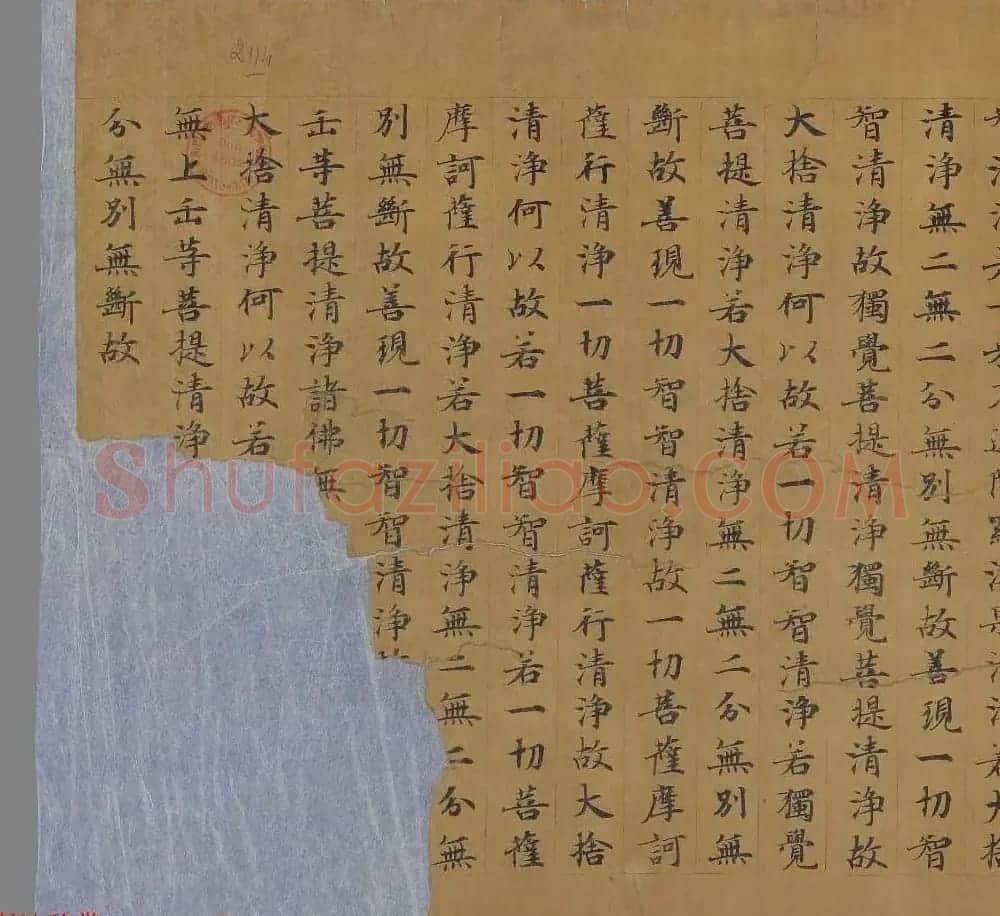 清浄無二無二分無別無斷故善現一切智
智清浄故獨覺菩提清浄獨覺菩提清浄故
大捨清浄何以故若一切智智清浄若獨覺
菩提清浄若大捨清浄無二無二分無別無
斷故善現一切智智清浄故一切菩薩摩訶
薩行清浄一切菩薩摩訶薩行清浄故大捨
清浄何以故若一切智智清浄若一切菩薩
摩訶薩行清浄若大捨清浄無二無二分無
別無斷故善現一切智智清浄
正等菩提清浄諸佛無
大捨清浄何以故若
無上正等菩提清浄
分無別無斷故
Shufaziliao.COM